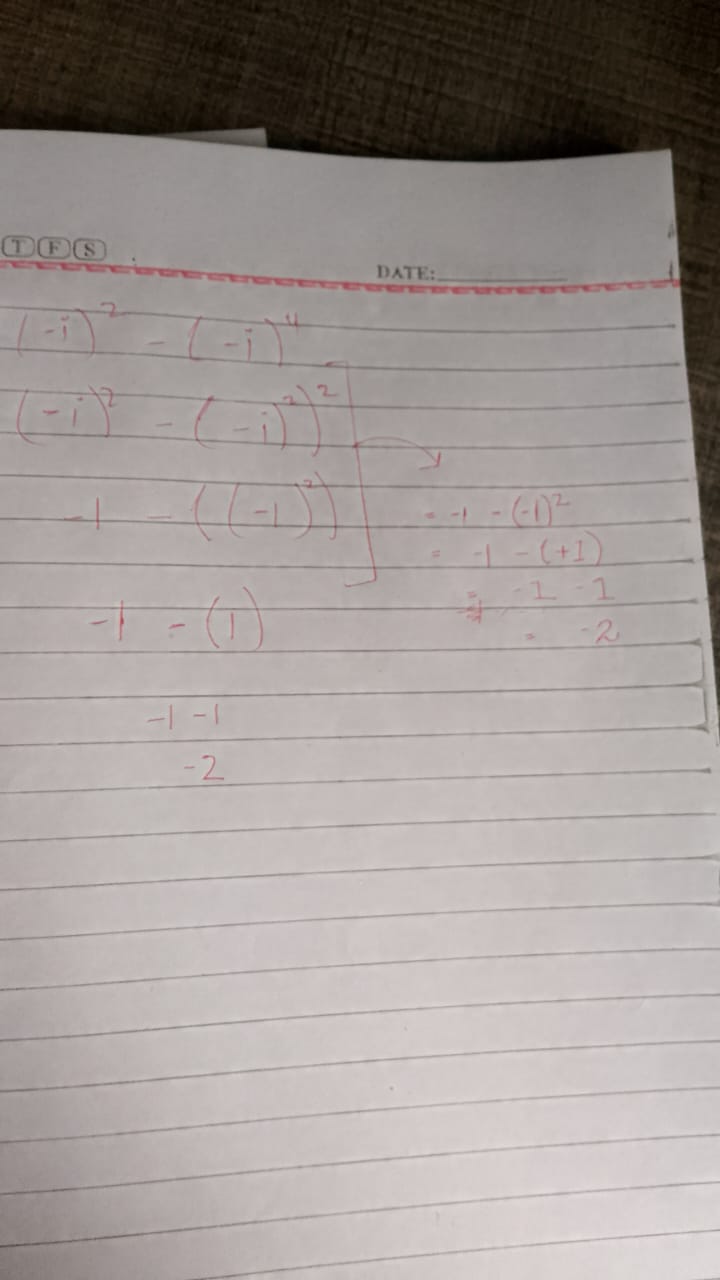 T F S
DATE:
(-i)² - (-i)⁴
(-i)² - ((-i)²)²
-1 - ((-1)²)
-1 - (1)
-1 -1
-2
= -1 - (-1)²
= -1 - (+1)
= -1 -1
= -2